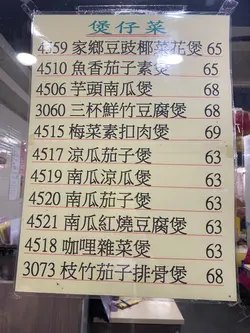 煲仔菜
4559 家鄉豆豉椰菜花煲 65
4510 魚香茄子素煲 65
4506 芋頭南瓜煲 68
3060 三杯鮮竹豆腐煲 68
4515 梅菜素扣肉煲 69
4517 涼瓜茄子煲 63
4519 南瓜涼瓜煲 63
4520 南瓜茄子煲 63
4521 南瓜紅燒豆腐煲 63
4518 咖哩雜菜煲 63
3073 枝竹茄子排骨煲 68